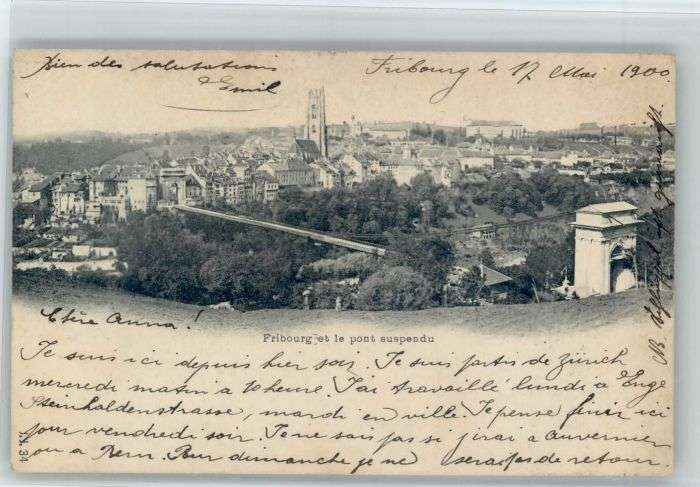 Bien des salutations
d'Emil
Fribourg le 17 Mai 1900
Chère Anna!
Fribourg et le pont suspendu
Je suis ici depuis hier soir. Je suis partis de Zürich
mercredi matin a 10 heure. J'ai travaillé lundi a Enge
Steinhaldenstrasse, mardi en ville. Je pense finir ici
pour vendredi soir. Je ne sais pas si j'irai a Auvernier
ou a Bern. Pour dimanche je ne serai pas de retour.
NB.
J.J. 34